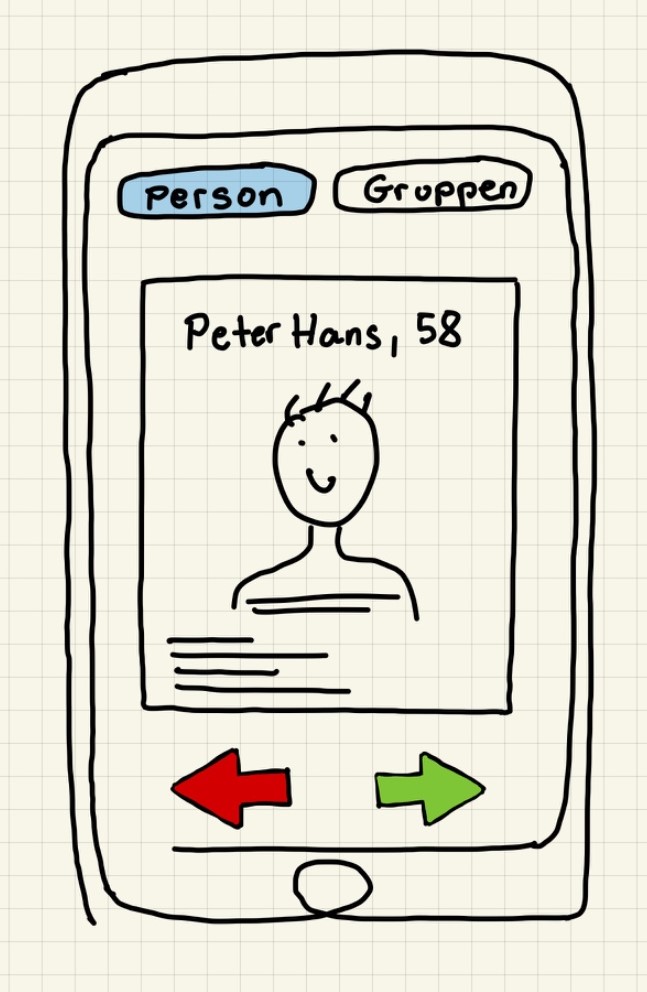 Person
Gruppen
Peter Hans, 58